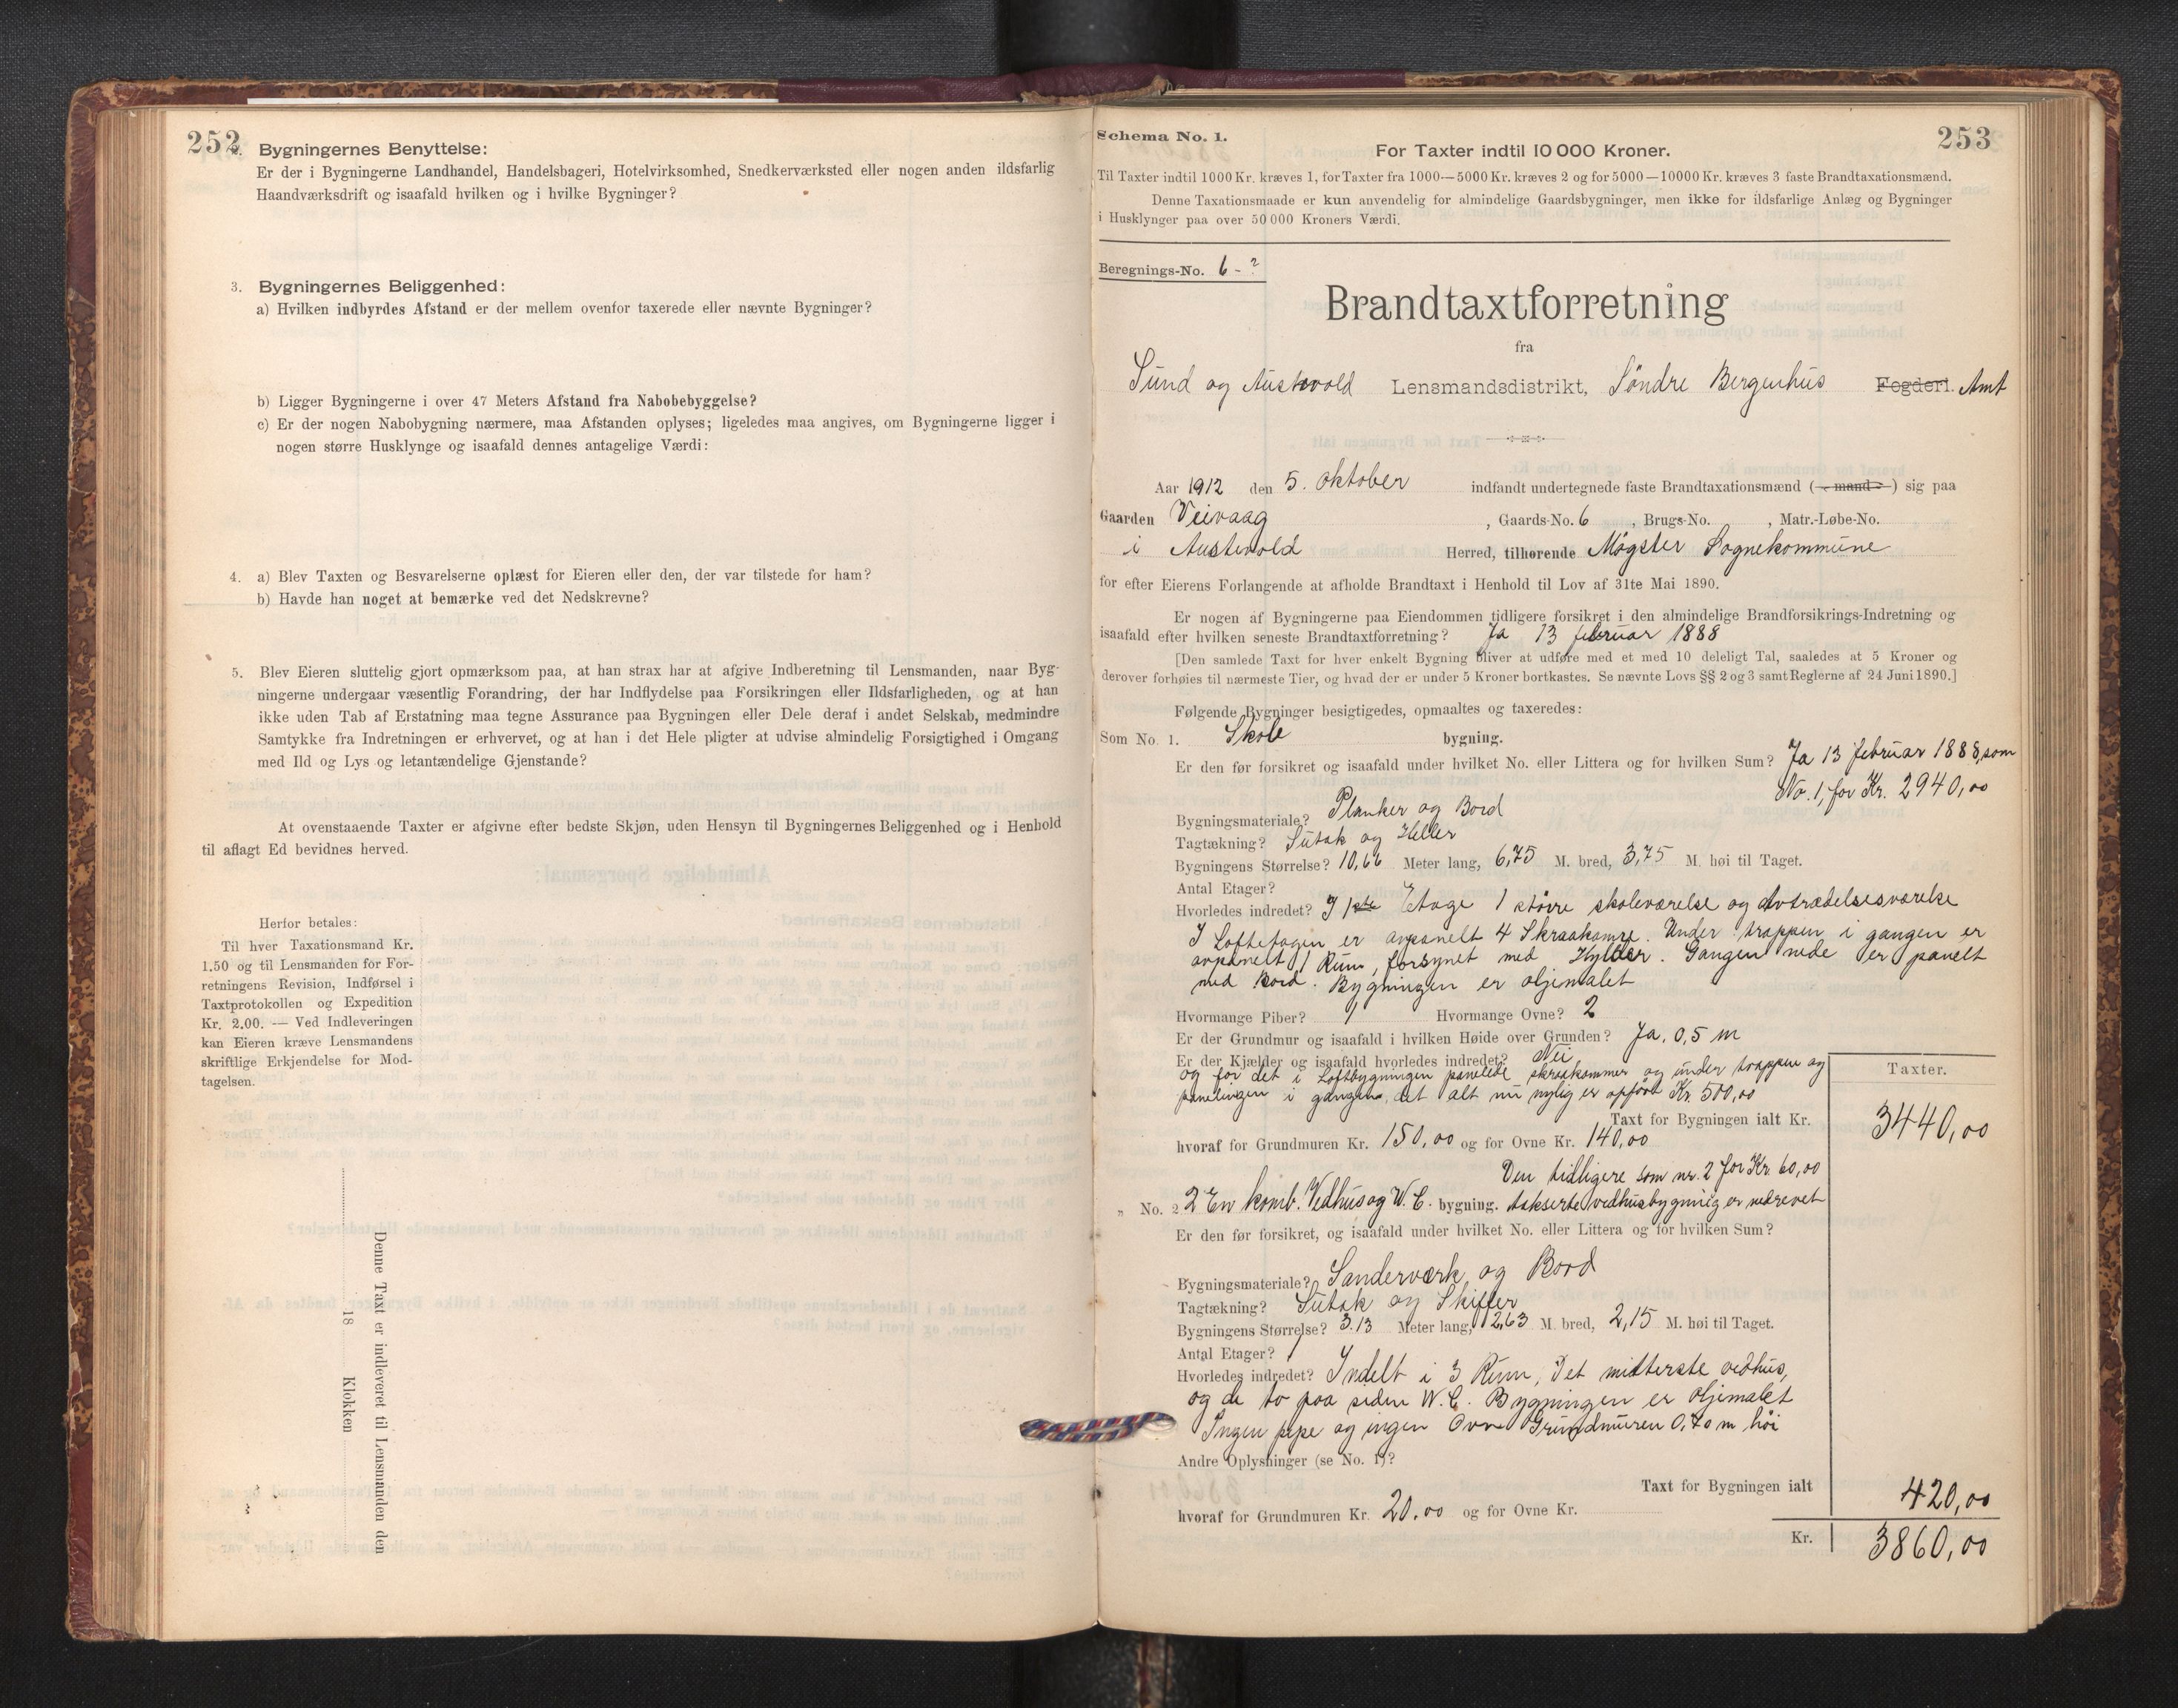 252
2. Bygningernes Benyttelse:
Er der i Bygningerne Landhandel, Handelsbageri, Hotelvirksomhed, Snedkerværksted eller nogen anden ildsfarlig
Haandværksdrift og isaafald hvilken og i hvilke Bygninger?
3. Bygningernes Beliggenhed:
a) Hvilken indbyrdes Afstand er der mellem ovenfor taxerede eller nævnte Bygninger?
b) Ligger Bygningerne i over 47 Meters Afstand fra Nabobebyggelse?
c) Er der nogen Nabobygning nærmere, maa Afstanden oplyses; ligeledes maa angives, om Bygningerne ligger i
nogen større Husklynge og isaafald dennes antagelige Værdi:
4. a) Blev Taxten og Besvarelserne oplæst for Eieren eller den, der var tilstede for ham?
b) Havde han noget at bemærke ved det Nedskrevne?
5. Blev Eieren sluttelig gjort opmærksom paa, at han strax har at afgive Indberetning til Lensmanden, naar Byg-
ningerne undergaar væsentlig Forandring, der har Indflydelse paa Forsikringen eller Ildsfarligheden, og at han
ikke uden Tab af Erstatning maa tegne Assurance paa Bygningen eller Dele deraf i andet Selskab, medmindre
Samtykke fra Indretningen er erhvervet, og at han i det Hele pligter at udvise almindelig Forsigtighed i Omgang
med Ild og Lys og letantændelige Gjenstande?
At ovenstaaende Taxter er afgivne efter bedste Skjøn, uden Hensyn til Bygningernes Beliggenhed og i Henhold
til aflagt Ed bevidnes herved.
Herfor betales:
Til hver Taxationsmand Kr.
1.50 og til Lensmanden for For-
retningens Revision, Indførsel i
Taxtprotokollen og Expedition
Kr. 2.00. — Ved Indleveringen
kan Eieren kræve Lensmandens
skriftlige Erkjendelse for Mod-
tagelsen.
Denne Taxt er indleveret til Lensmanden den
18 Klokken
Schema No. 1.
253
For Taxter indtil 10 000 Kroner.
Til Taxter indtil 1000 Kr. kræves 1, for Taxter fra 1000—5000 Kr. kræves 2 og for 5000—10000 Kr. kræves 3 faste Brandtaxationsmænd.
Denne Taxationsmaade er kun anvendelig for almindelige Gaardsbygninger, men ikke for ildsfarlige Anlæg og Bygninger
i Husklynger paa over 50 000 Kroners Værdi.
Beregnings-No. 6 - ?
Brandtaxtforretning
fra
Sund og Austevold Lensmandsdistrikt, Söndre Bergenhus Fogderi. Amt
Aar 1912 den 5. oktober indfandt undertegnede faste Brandtaxationsmænd (- mand -) sig paa
Gaarden Veivaag, Gaards-No. 6, Brugs-No. , Matr.-Løbe-No.
i Austevold Herred, tilhørende Møgster Sognekommune
for efter Eierens Forlangende at afholde Brandtaxt i Henhold til Lov af 31te Mai 1890.
Er nogen af Bygningerne paa Eiendommen tidligere forsikret i den almindelige Brandforsikrings-Indretning og
isaafald efter hvilken seneste Brandtaxtforretning? Ja 13 februar 1888
[Den samlede Taxt for hver enkelt Bygning bliver at udføre med et med 10 deleligt Tal, saaledes at 5 Kroner og
derover forhøies til nærmeste Tier, og hvad der er under 5 Kroner bortkastes. Se nævnte Lovs §§ 2 og 3 samt Reglerne af 24 Juni 1890.]
Følgende Bygninger besigtigedes, opmaaltes og taxeredes:
Som No. 1. Skole bygning.
Er den før forsikret og isaafald under hvilket No. eller Littera og for hvilken Sum? Ja 13 februar 1888, som
No. 1, for Kr. 2940,00
Bygningsmateriale? Planker og Bord
Tagtækning? Sutak og Heller
Bygningens Størrelse? 10,66 Meter lang, 6,75 M. bred, 3,75 M. høi til Taget.
Antal Etager?
Hvorledes indredet? I 1ste Etage 1 större skoleværelse og Avtrædelsesværelse
I Loftetagen er avpanelt 4 Skraakamre. Under trappen i gangen er
avpanelt 1 Rum, forsynet med Hylder. Gangen nede er panelt
med bord. Bygningen er oljemalet
Hvormange Piber? 1 Hvormange Ovne? 2
Er der Grundmur og isaafald i hvilken Høide over Grunden? Ja. 0,5 m
Er der Kjælder og isaafald hvorledes indredet? Nei
og for det i Loftbygningen panelede skraakammer og under trappen og
panelingen i gangen, det alt nu nylig er opfört Kr. 500,00
Taxter.
Taxt for Bygningen ialt Kr. 3440,00
hvoraf for Grundmuren Kr. 150,00 og for Ovne Kr. 140,00
Den tidligere som nr. 2 for Kr. 60,00
" No. 2 2 En komb. Vedhus og W. C. bygning. takserte vedhusbygning er nedrevet
Er den før forsikret, og isaafald under hvilket No. eller Littera og for hvilken Sum?
Bygningsmateriale? Sanderværk og Bord
Tagtækning? Sutak og Skiffer
Bygningens Størrelse? 3.13 Meter lang, 2,63 M. bred, 2,15 M. høi til Taget.
Antal Etager? 1
Hvorledes indredet? Indelt i 3 Rum, Det midterste vedhus,
og de to paa siden W. C. Bygningen er oljemalet
Ingen pipe og ingen Ovn Grundmuren 0,70 m höi
Andre Oplysninger (se No. 1)?
Taxt for Bygningen ialt 420,00
hvoraf for Grundmuren Kr. 20.00 og for Ovne Kr.
Kr. 3860,00